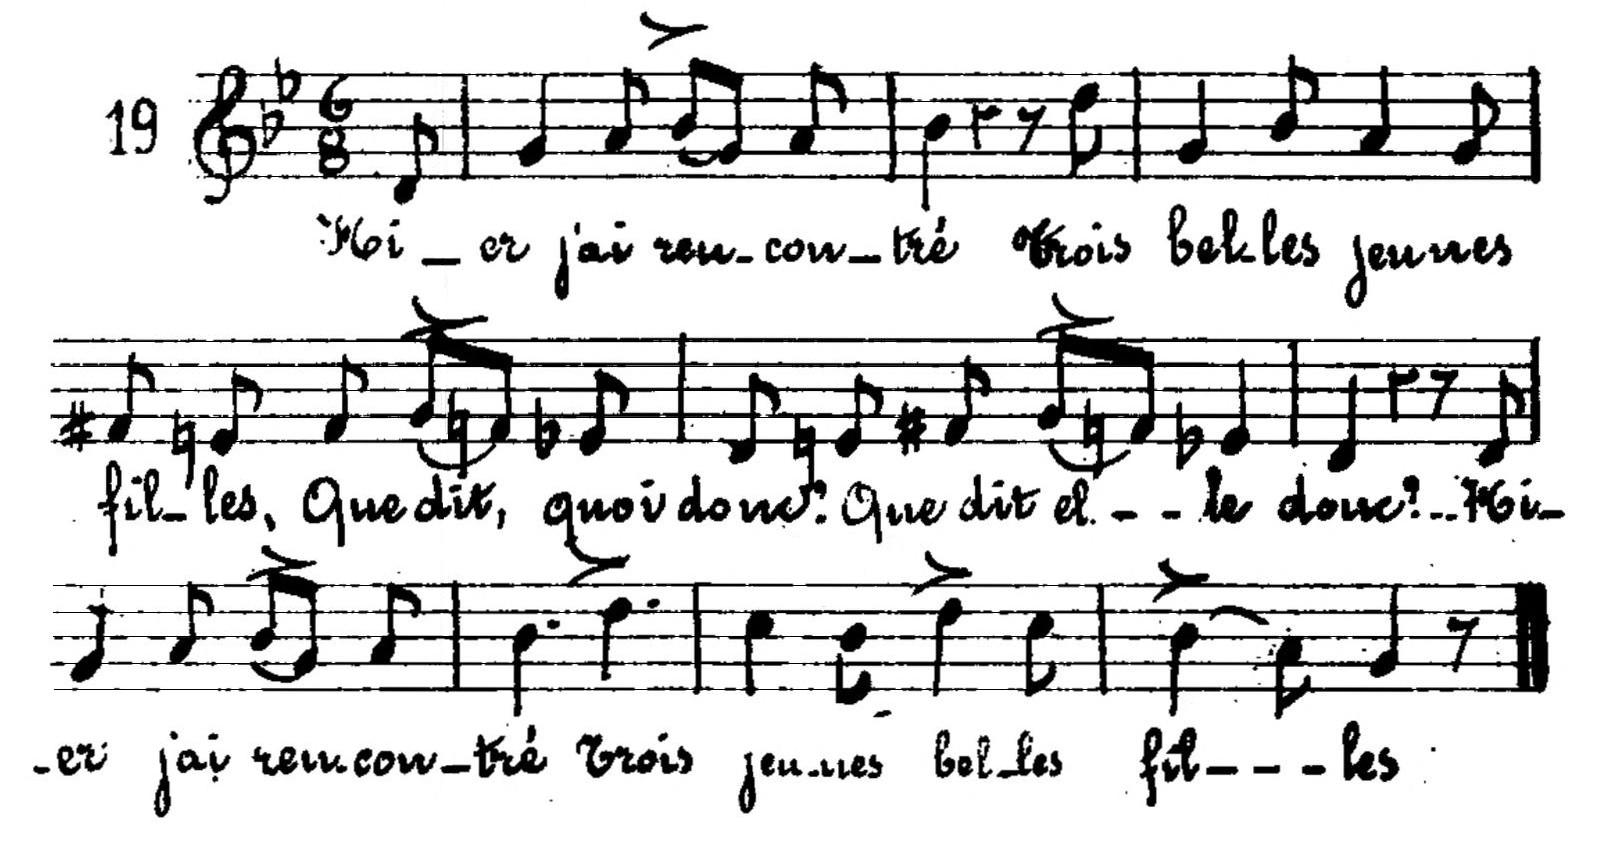 19 6 8
Hi_er j'ai ren-con-tré Trois bel-les jeunes
fil-les, Que dit, quoi donc? Que dit el--le donc?.. Hi-
-er j'ai ren-con-tré Trois jeu-nes bel-les fil---les